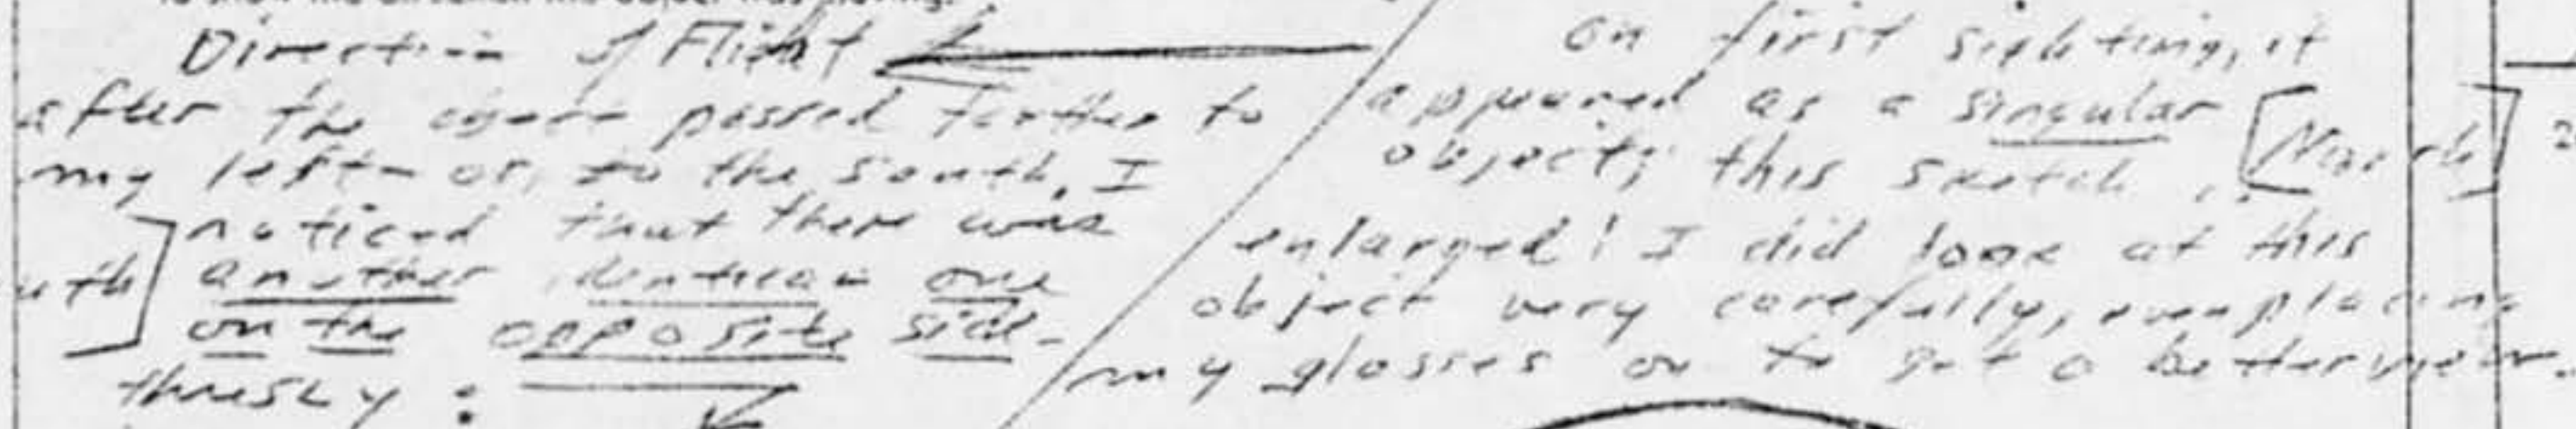 Direction of Flight
after the object passed further to
my left - or, to the south, I
noticed that there was
uth] another identical one
on the opposite side -
thusly:
on first sighting, it
appeared as a singular
object; this sketch, [North]
enlarged! I did look at this
object very carefully, even placing
my glasses on to get a better view.
2